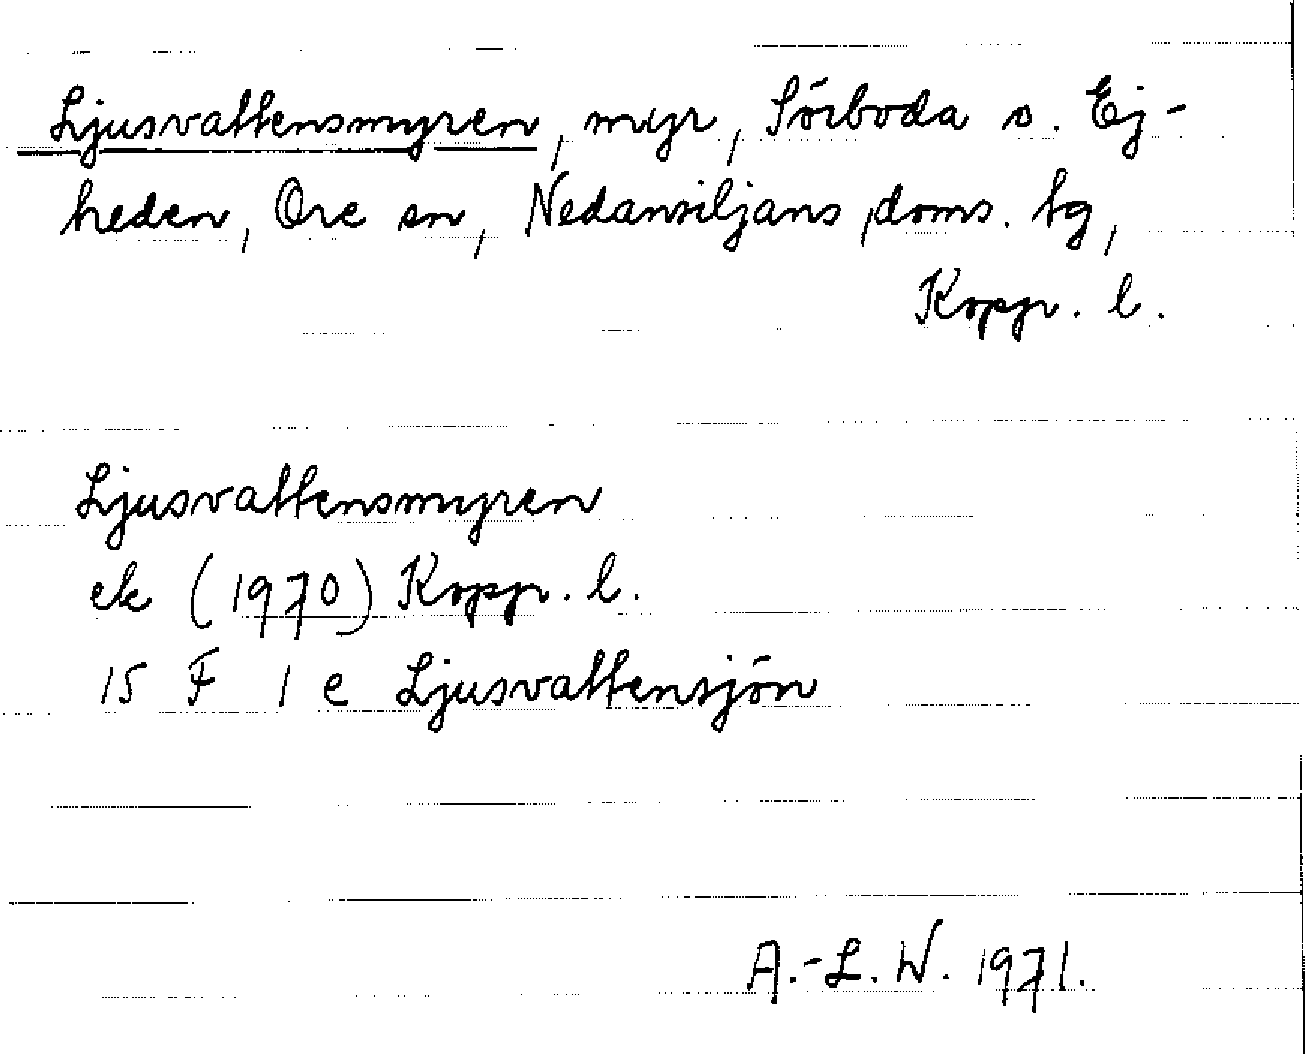 Ljusvattensmyren, myr, Sörboda s. Ej-
heden, Ore sn, Nedansiljans doms. tg,
Koppr. l.
Ljusvattensmyren
ek (1970) Koppr. l.
15 F 1 e Ljusvattensjön
A.-L. W. 1971.